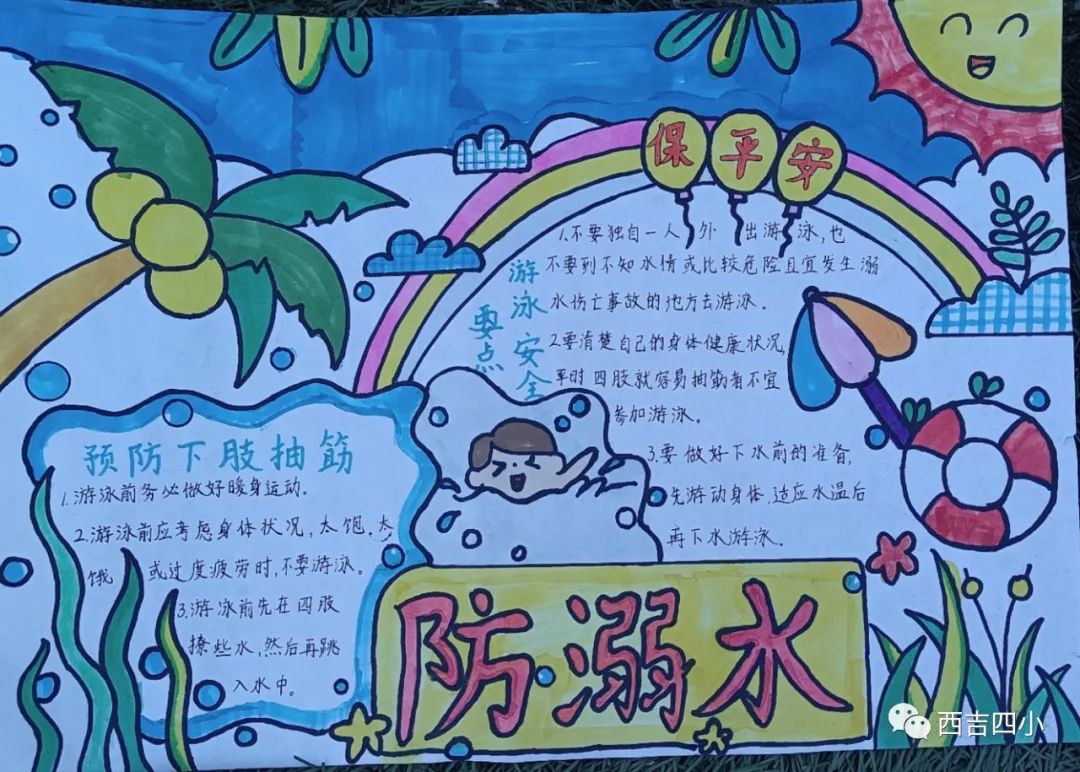 保平安
游泳安全
要点
1.不要独自一人外出游泳,也
不要到不知水情或比较危险且宜发生溺
水伤亡事故的地方去游泳.
2要清楚自己的身体健康状况,
平时四肢就容易抽筋者不宜
参加游泳.
3.要做好下水前的准备,
先游动身体,适应水温后
再下水游泳.
预防下肢抽筋
1.游泳前务必做好暖身运动.
2.游泳前应考虑身体状况,太饱.太
饿或过度疲劳时,不要游泳.
3.游泳前先在四肢
撩些水,然后再跳
入水中.
防溺水
西吉四小